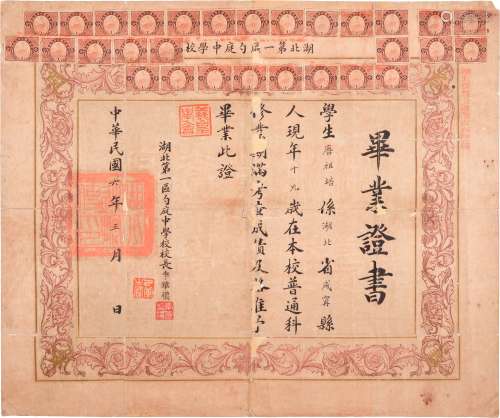 湖北第一區勺庭中學校
畢業證書
學生唐祖培係湖北省咸寧縣
人現年十九歲在本校普通科
修業期滿考查成績及格准予
畢業此證
湖北第一區勺庭中學校校長李華
中華民國六年三月 日